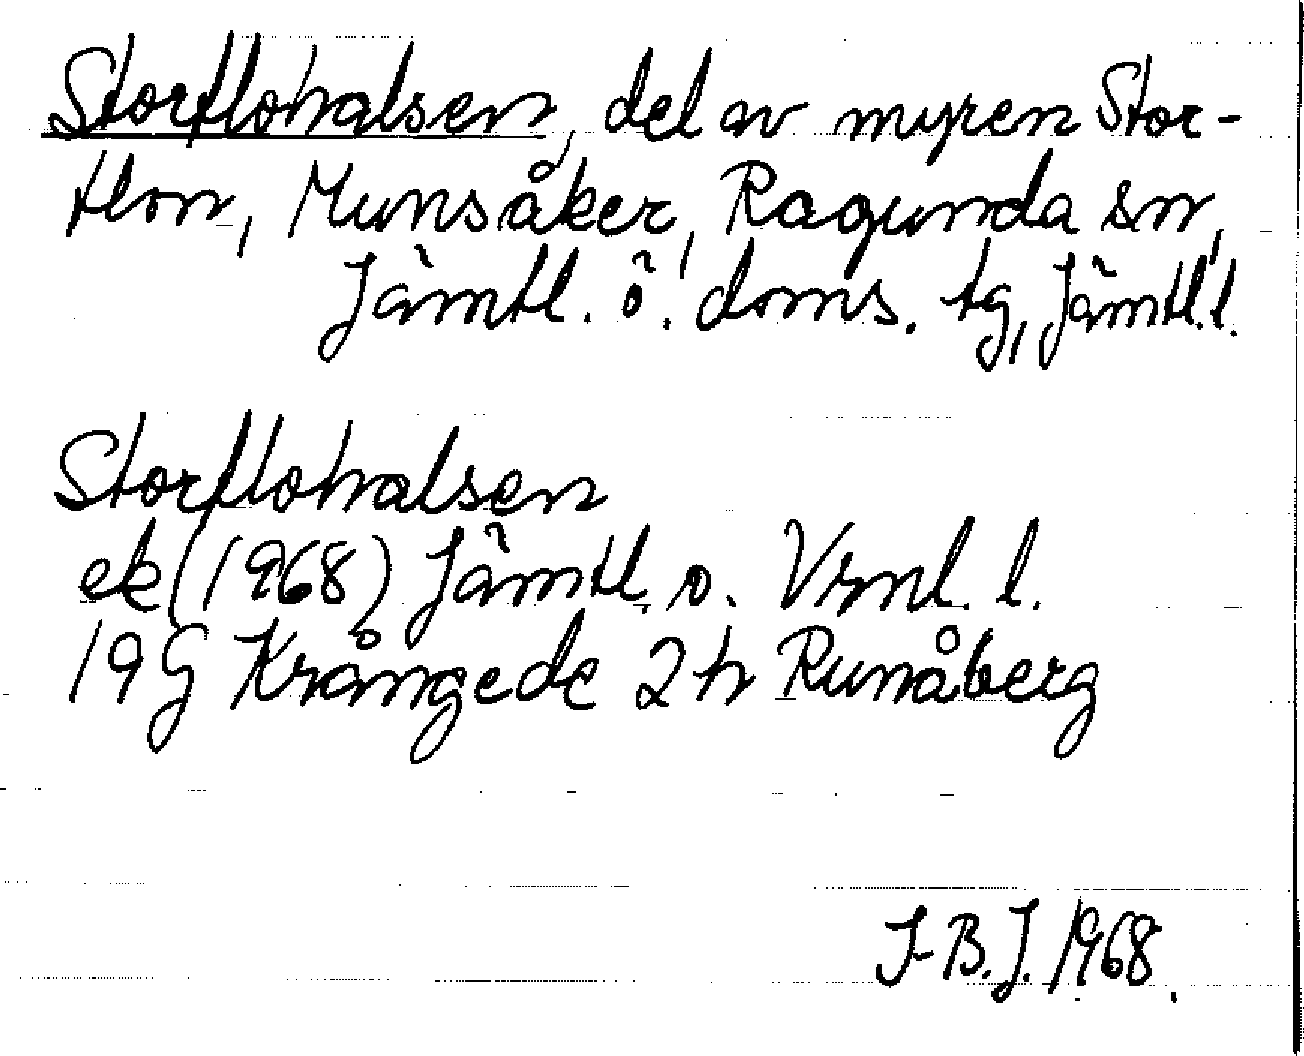 Storflohalsen, del av myren Stor-
flon, Munsåker, Ragunda sn,
Jämtl. ö. doms. tg, Jämtl. l.
Storflohalsen
ek (1968) Jämtl. o. Vrnl. l.
19G Krångede 2h Runåberg
J-B.J. 1968.